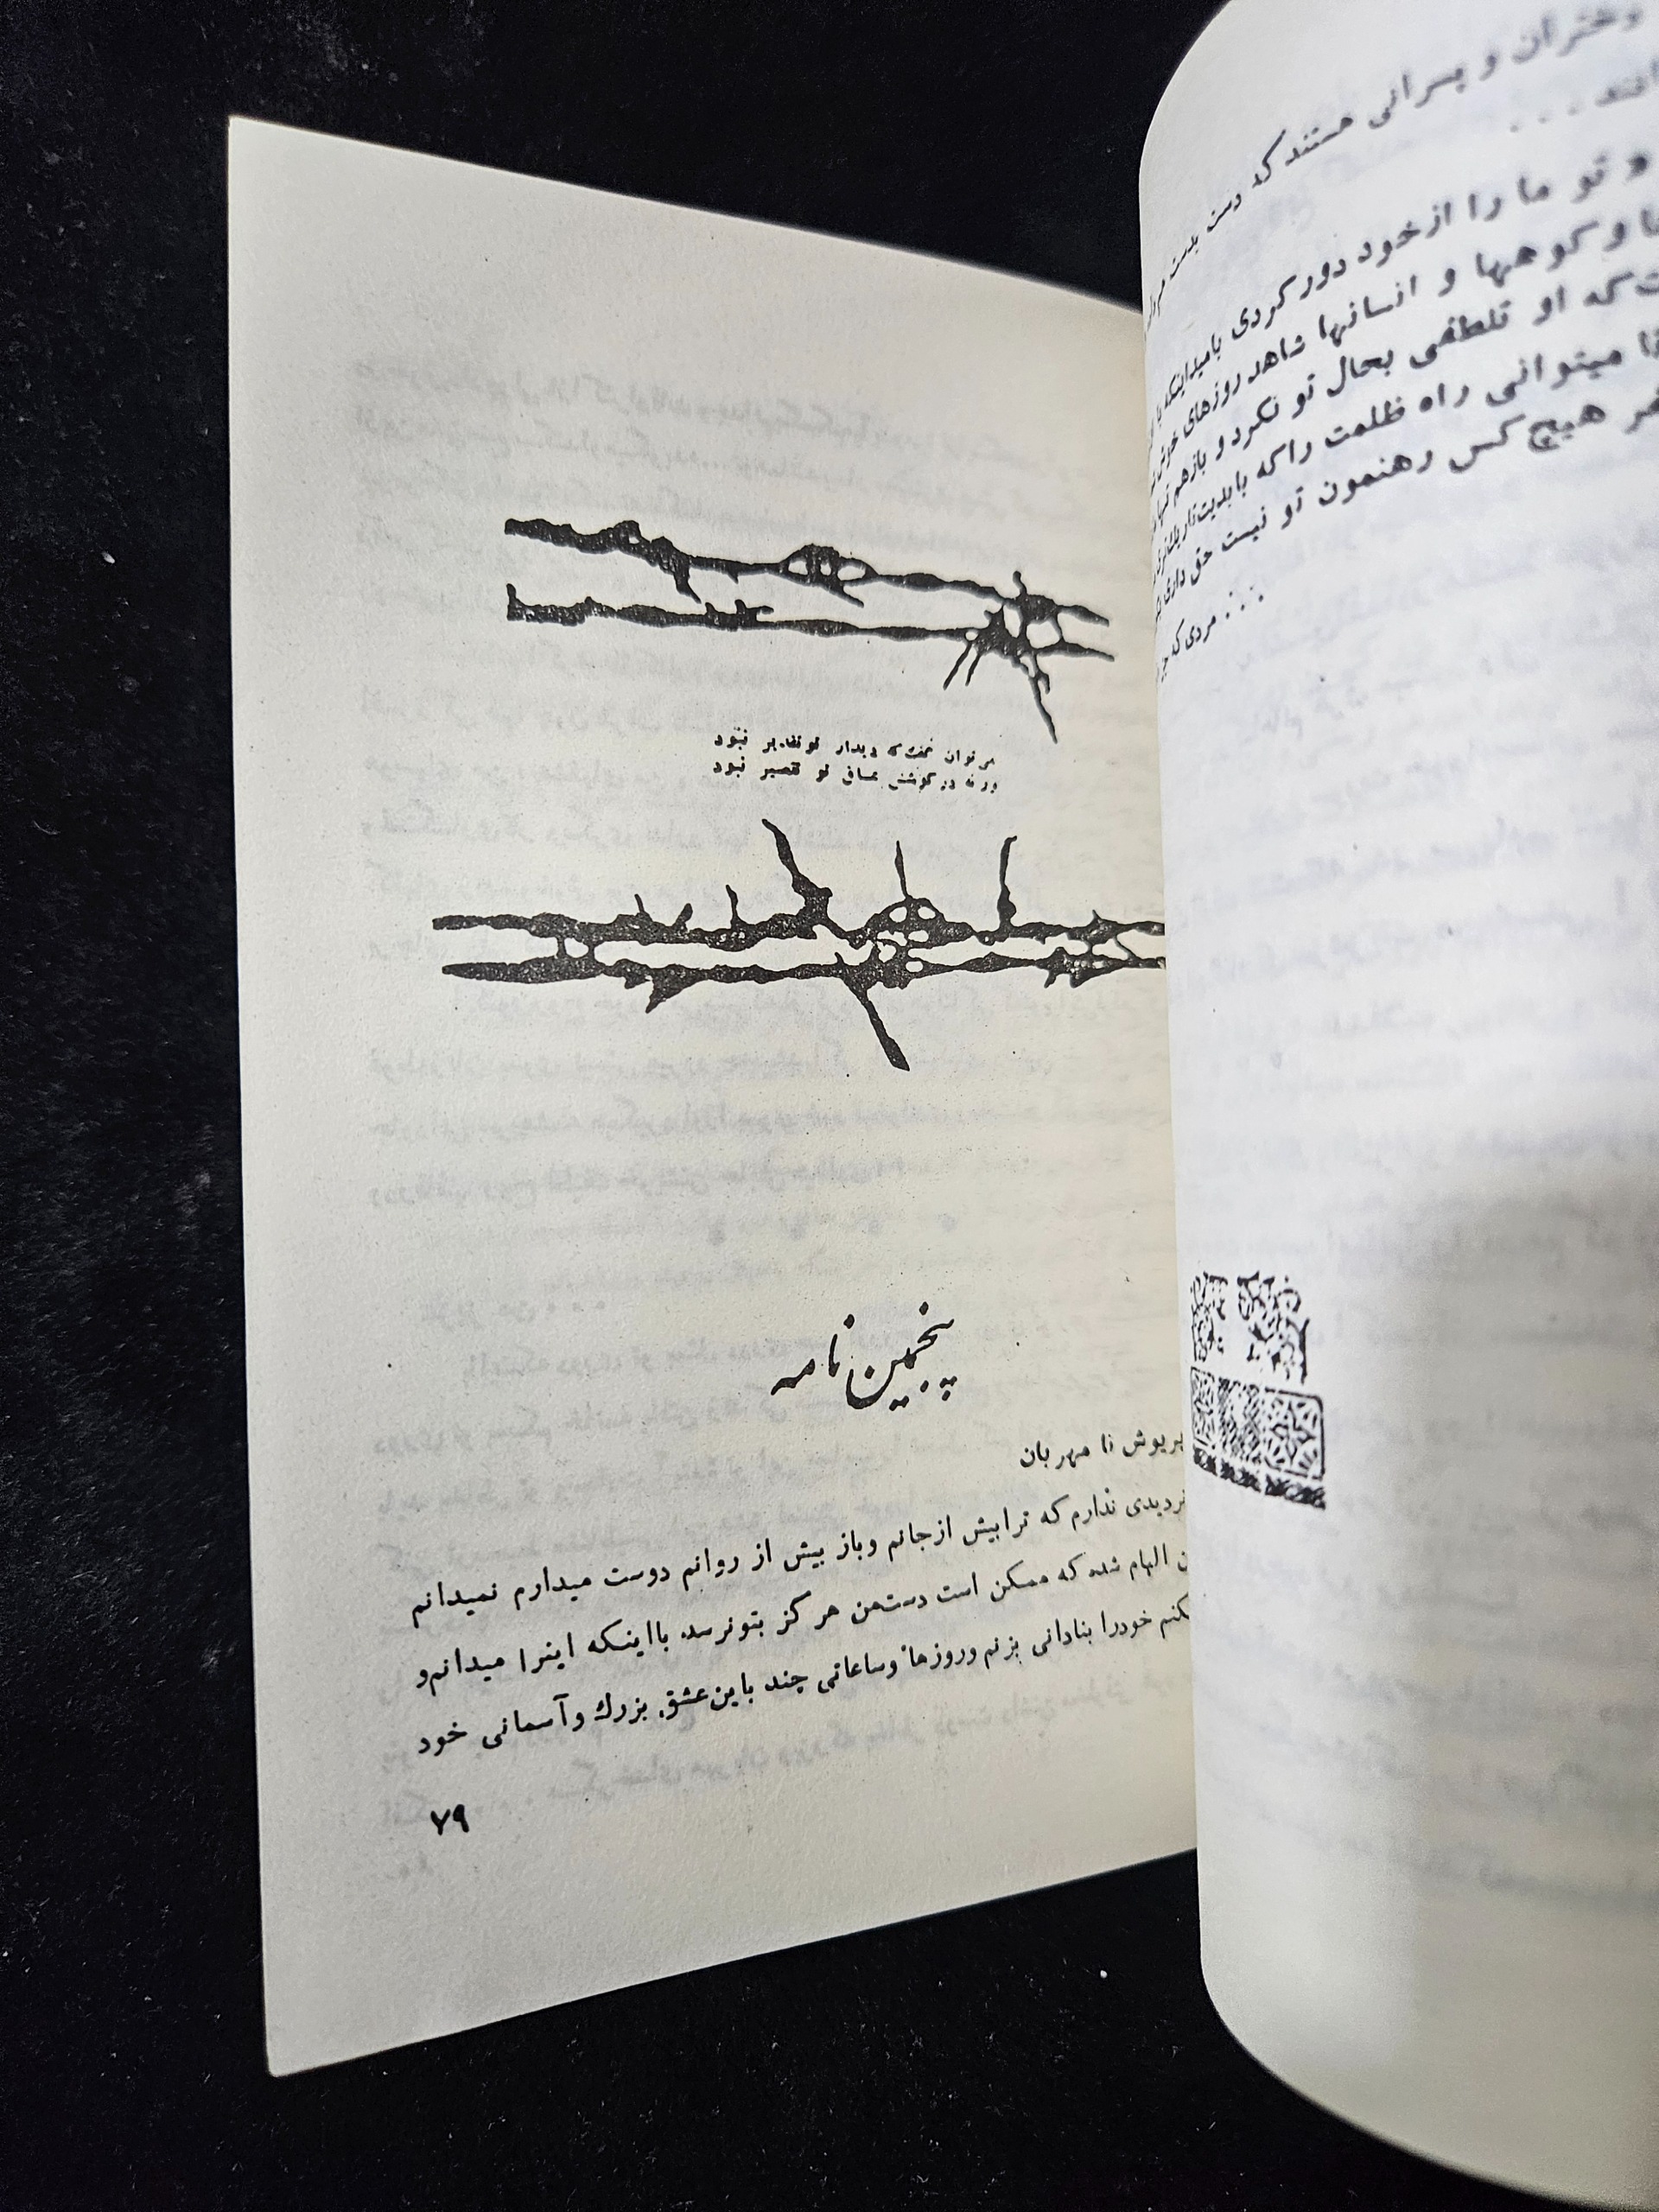 دختران و پسرانی هستند که دست بدست
انند ...
و تو ما را از خود دور کردی بامیداینکه
ها و کوهها و انسانها شاهد روزهای خوش
ت که او تلطفی بحال تو نکرد و بازهم تنها
تا میتوانی راه ظلمت را که بابدیت تاریک
هر هیچ کس رهنمون تو نیست حق داری
... مردی که
می توان گفت که دیدار تو تقدیر نبود
ور نه در کوشش عشاق تو تقصیر نبود
پنجمین نامه
پریوش نا مهربان
تردیدی ندارم که ترابیش ازجانم وباز بیش از روانم دوست میدارم نمیدانم
الهام شده که ممکن است دستمن هرگز بتونرسد. بااینکه اینرا میدانم و
خودرا بنادانی بزنم وروزها وساعاتی چند باین عشق بزرگ وآسمانی خود
۷۹